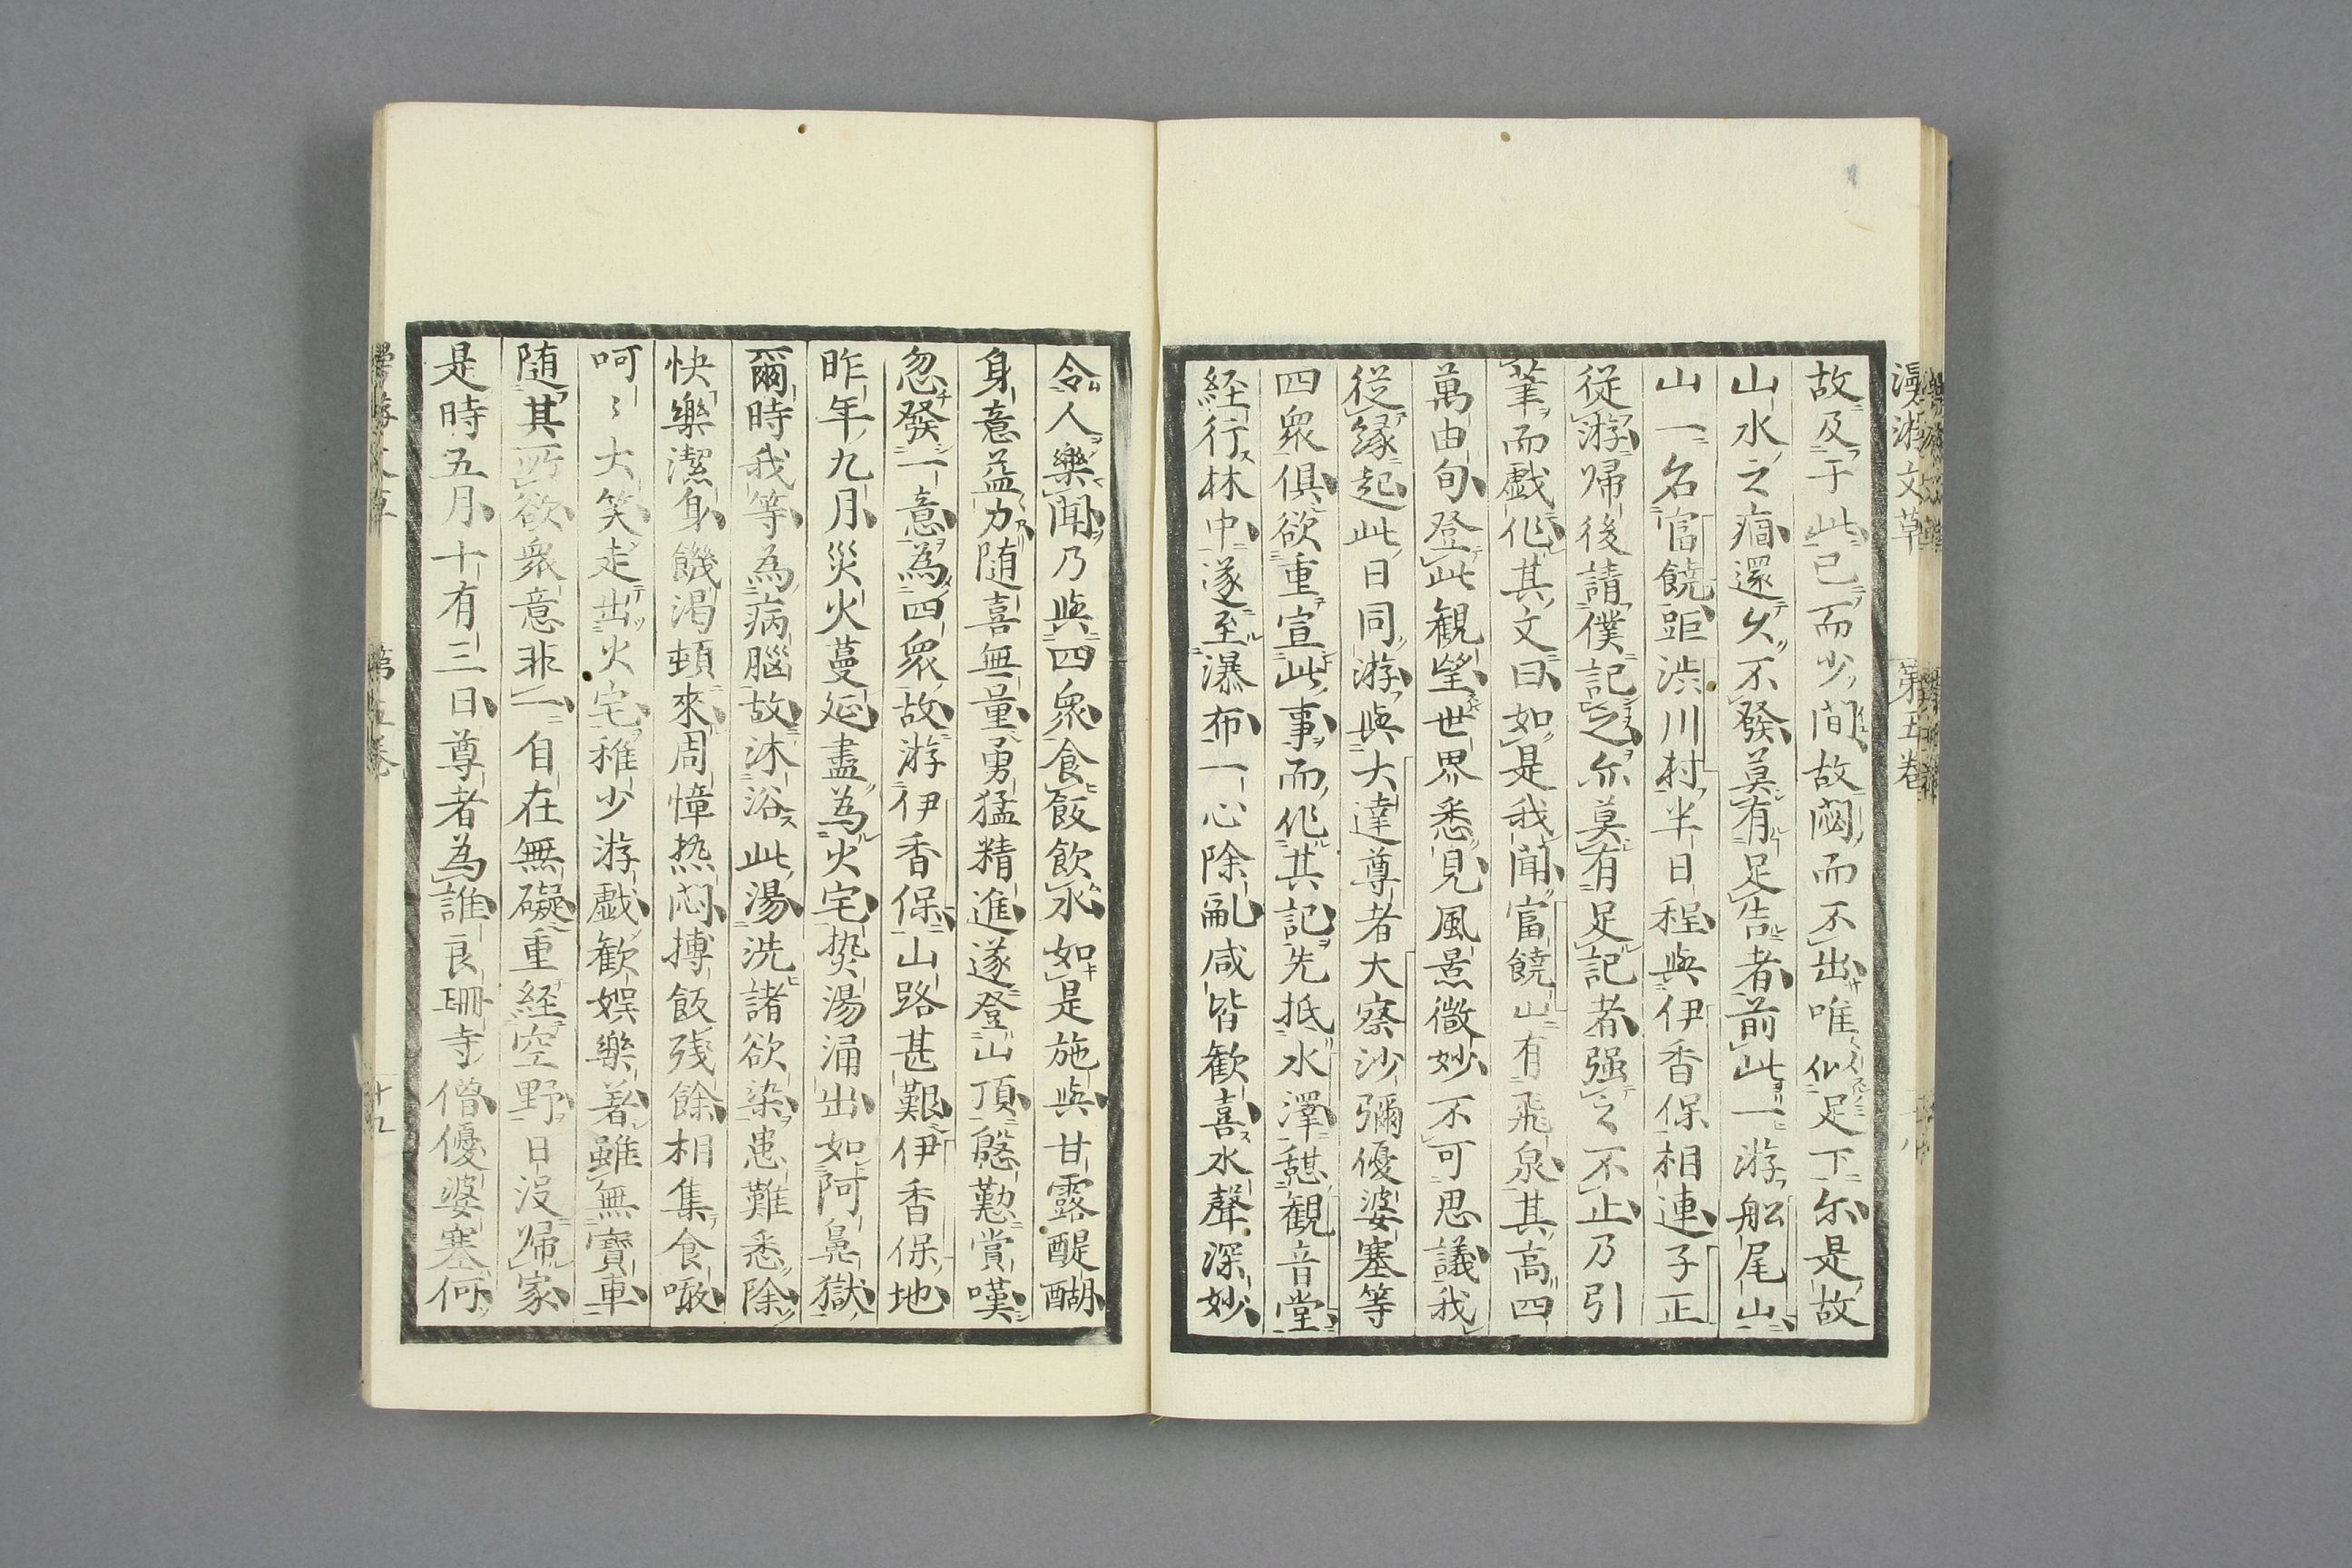 漫游文草 第五巻
故及于此已而少間故闊而不出唯似足下尓是故
山水之痼還久不發莫有足告者前此一游舩尾山
山一名富饒距渋川村半日程與伊香保相連子正
従游帰後請僕記之尓莫有足記者强之不止乃引
筆而戯作其文曰如是我聞富饒山有飛泉其高四
萬由旬登此観望世界悉見風景微妙不可思議我
従縁起此日同游與大達尊者大察沙彌優婆塞等
四衆俱欲重宣此事而作其記先抵水澤憩観音堂
経行林中遂至瀑布一心除亂咸皆歓喜水聲深妙
令人樂聞乃與四衆食飯飲水如是施與甘露醍醐
身意益力随喜無量勇猛精進遂登山頂慇懃賞嘆
忽發一意為四衆故游伊香保山路甚艱伊香保地
昨年九月災火蔓延盡為火宅𤍠湯涌出如阿鼻獄
爾時我等為病腦故沐浴此湯洗諸欲染患難悉除
快樂潔身饑渇頓來周慞热悶摶飯残餘相集食噉
呵〻大笑走出火宅稚少游戯歓娯樂著雖無寳車
随其所欲衆意非一自在無礙重経空野日没帰家
是時五月十有三日尊者為誰良珊寺僧優婆塞何
第五巻 十九